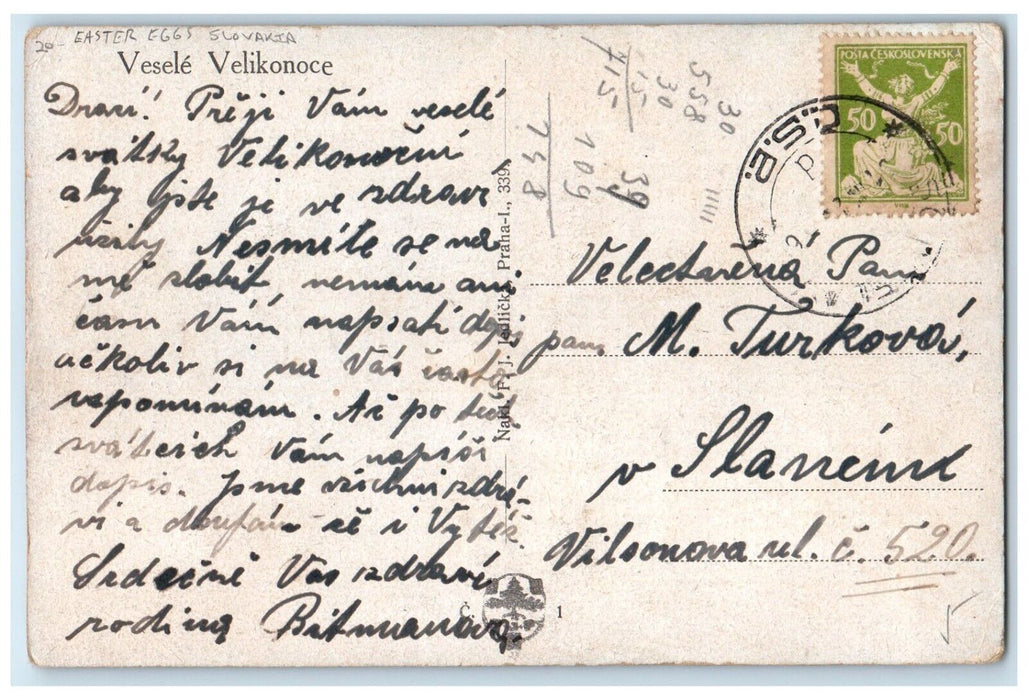 20- EASTER EGGS SLOVAKIA
Veselé Velikonoce
Drazí! Přeji Vám veselé
svátky Velikonoční
aby jste je ve zdraví
užily Nesmíte se na
mě zlobit, nemám ani
času Vám napsati dopis
ačkoliv si na Vás často
vzpomínám. Až po těch
svátcích Vám napíši
dopis. Jsme všichni zdrá-
vi a doufám že i Vy též.
Srdečně Vás zdraví
rodina Bitmanova.
Nakl. F. J. Jedlička, Praha-I., 339.
Č. 1
558
30
15
715
30
39
109
748
POŠTA ČESKOSLOVENSKÁ
50 50
Velectěná Paní
paní M. Turková,
v Slaném
Vilsonova ul. č. 520.